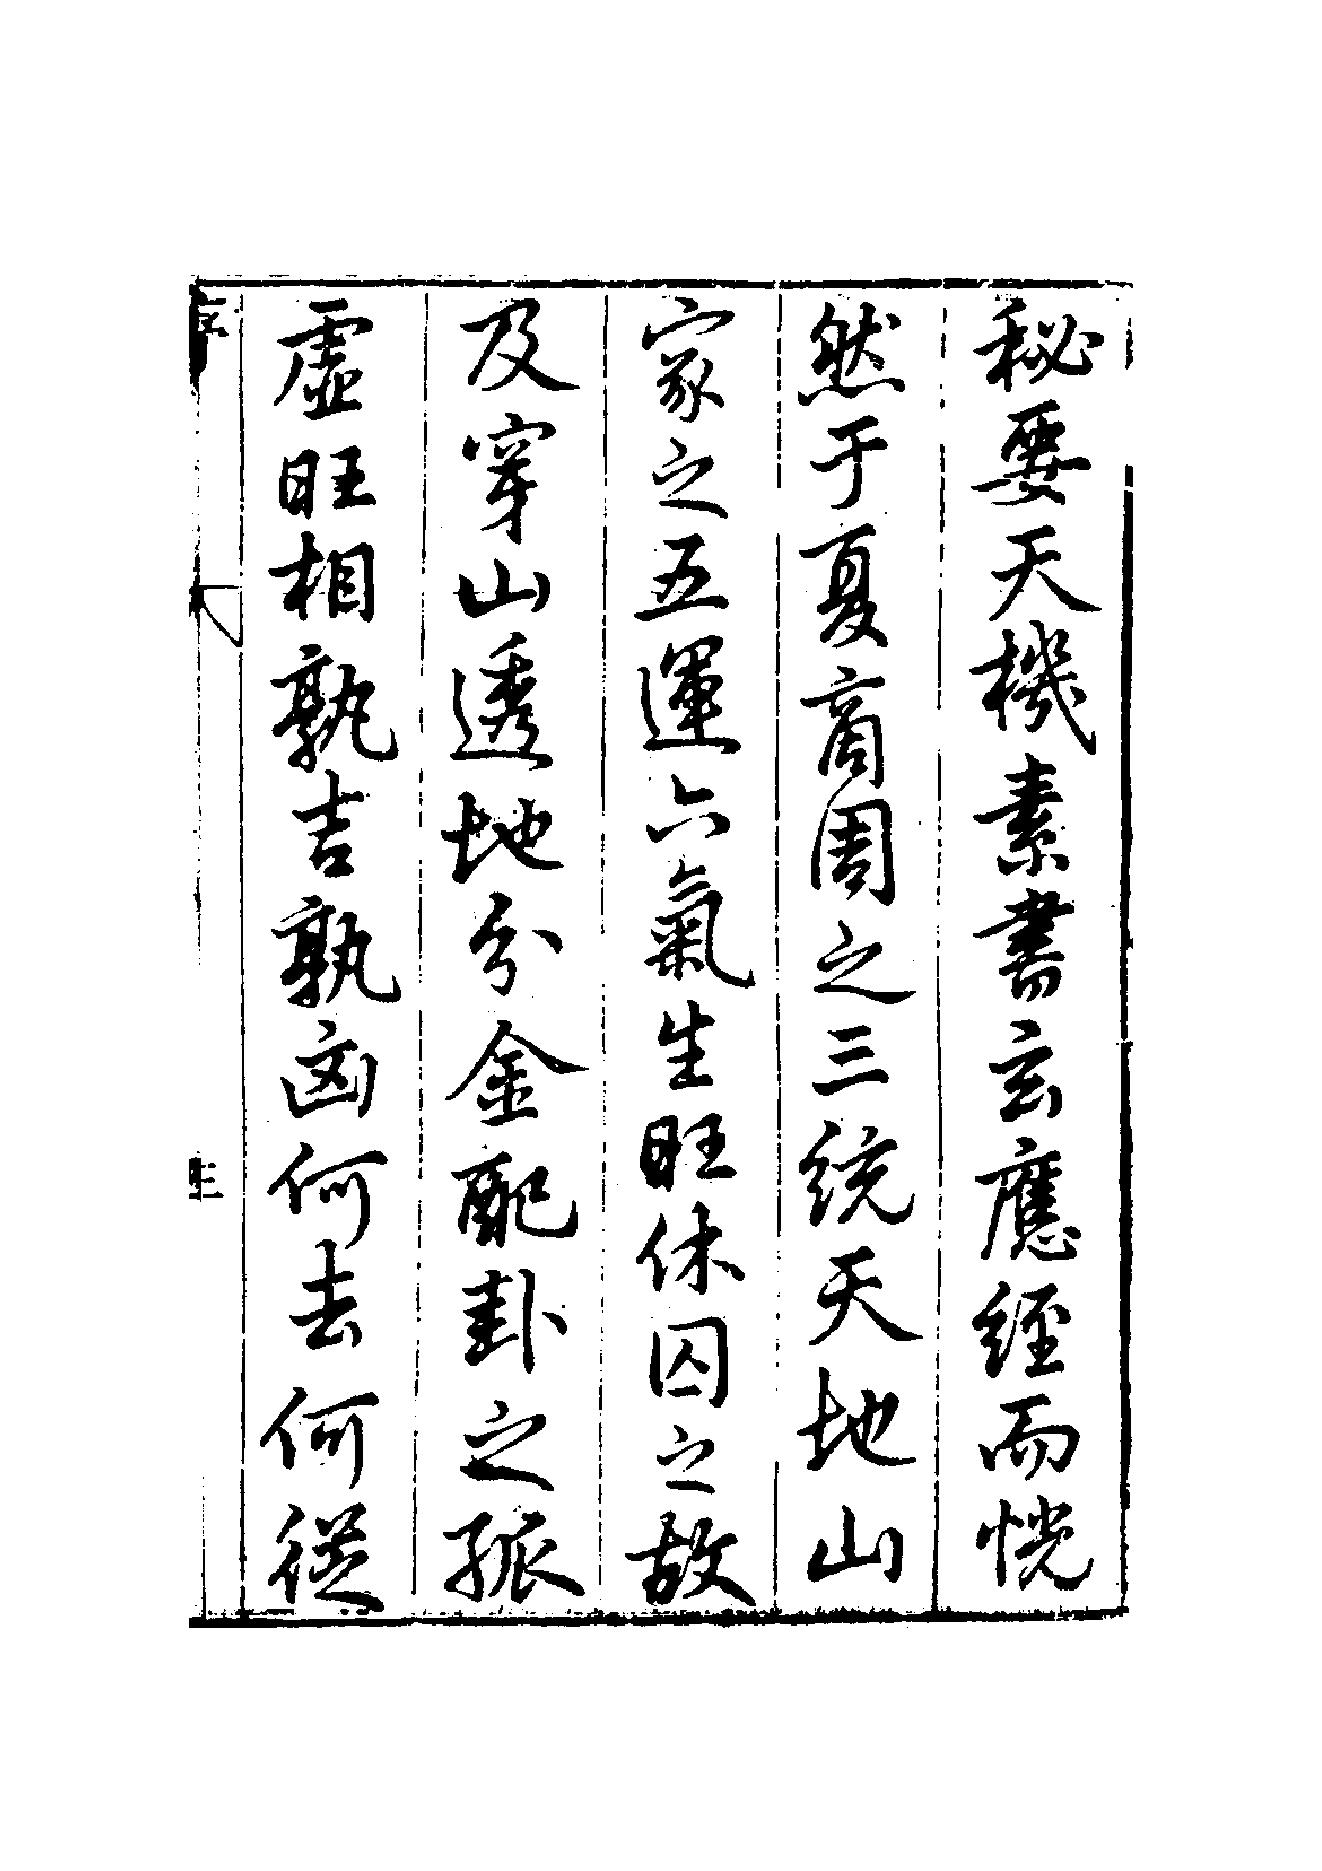 秘要天機素書玄應經而恍
然于夏商周之三統天地山
家之五運六氣生旺休囚之故
及穿山透地分金配卦之孤
虛旺相孰吉孰凶何去何從
序